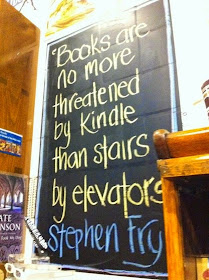 "Books are
no more
threatened
by Kindle
than stairs
by elevators
Stephen Fry
ATE